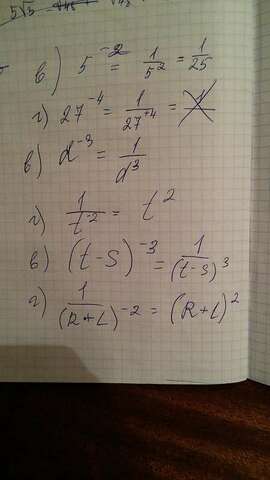 5√3
в) 5^-2 = 1/5^2 = 1/25
г) 27^-4 = 1/27^+4 =
в) d^-3 = 1/d^3
г) 1/t^-2 = t^2
в) (t-S)^-3 = 1/(t-s)^3
г) 1/(R+L)^-2 = (R+L)^2